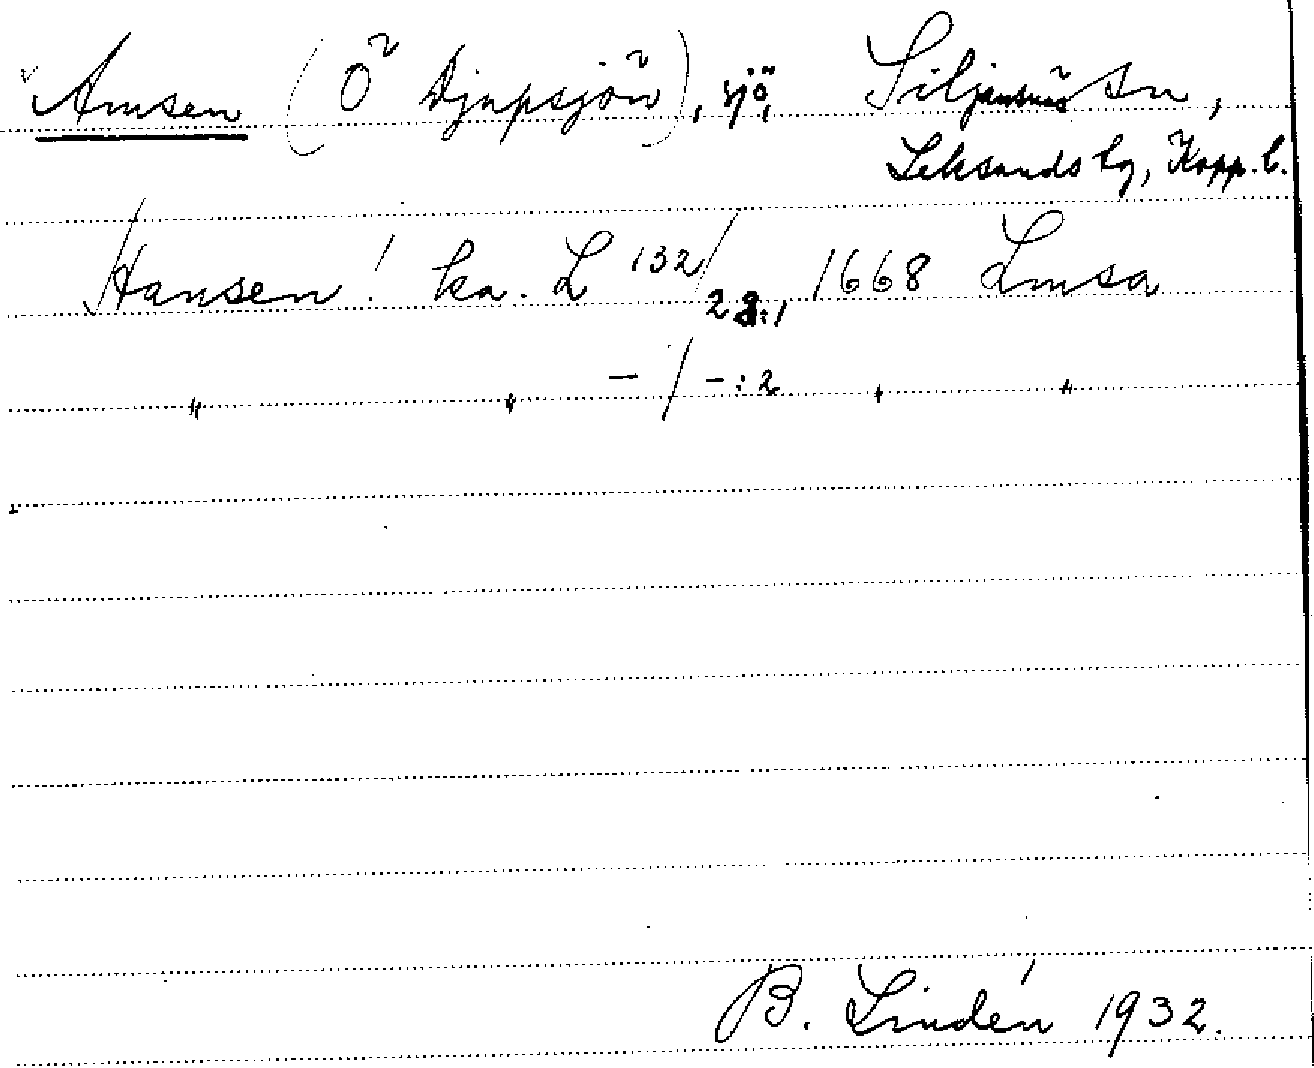 Amsen (Ö Djupsjön), sjö, Siljansnäs sn,
Leksands tg, Kopp. l.
Hansen! ka. L 132/28:1 1668 Lmsa
" " -/-:2 " "
B. Lindén 1932.